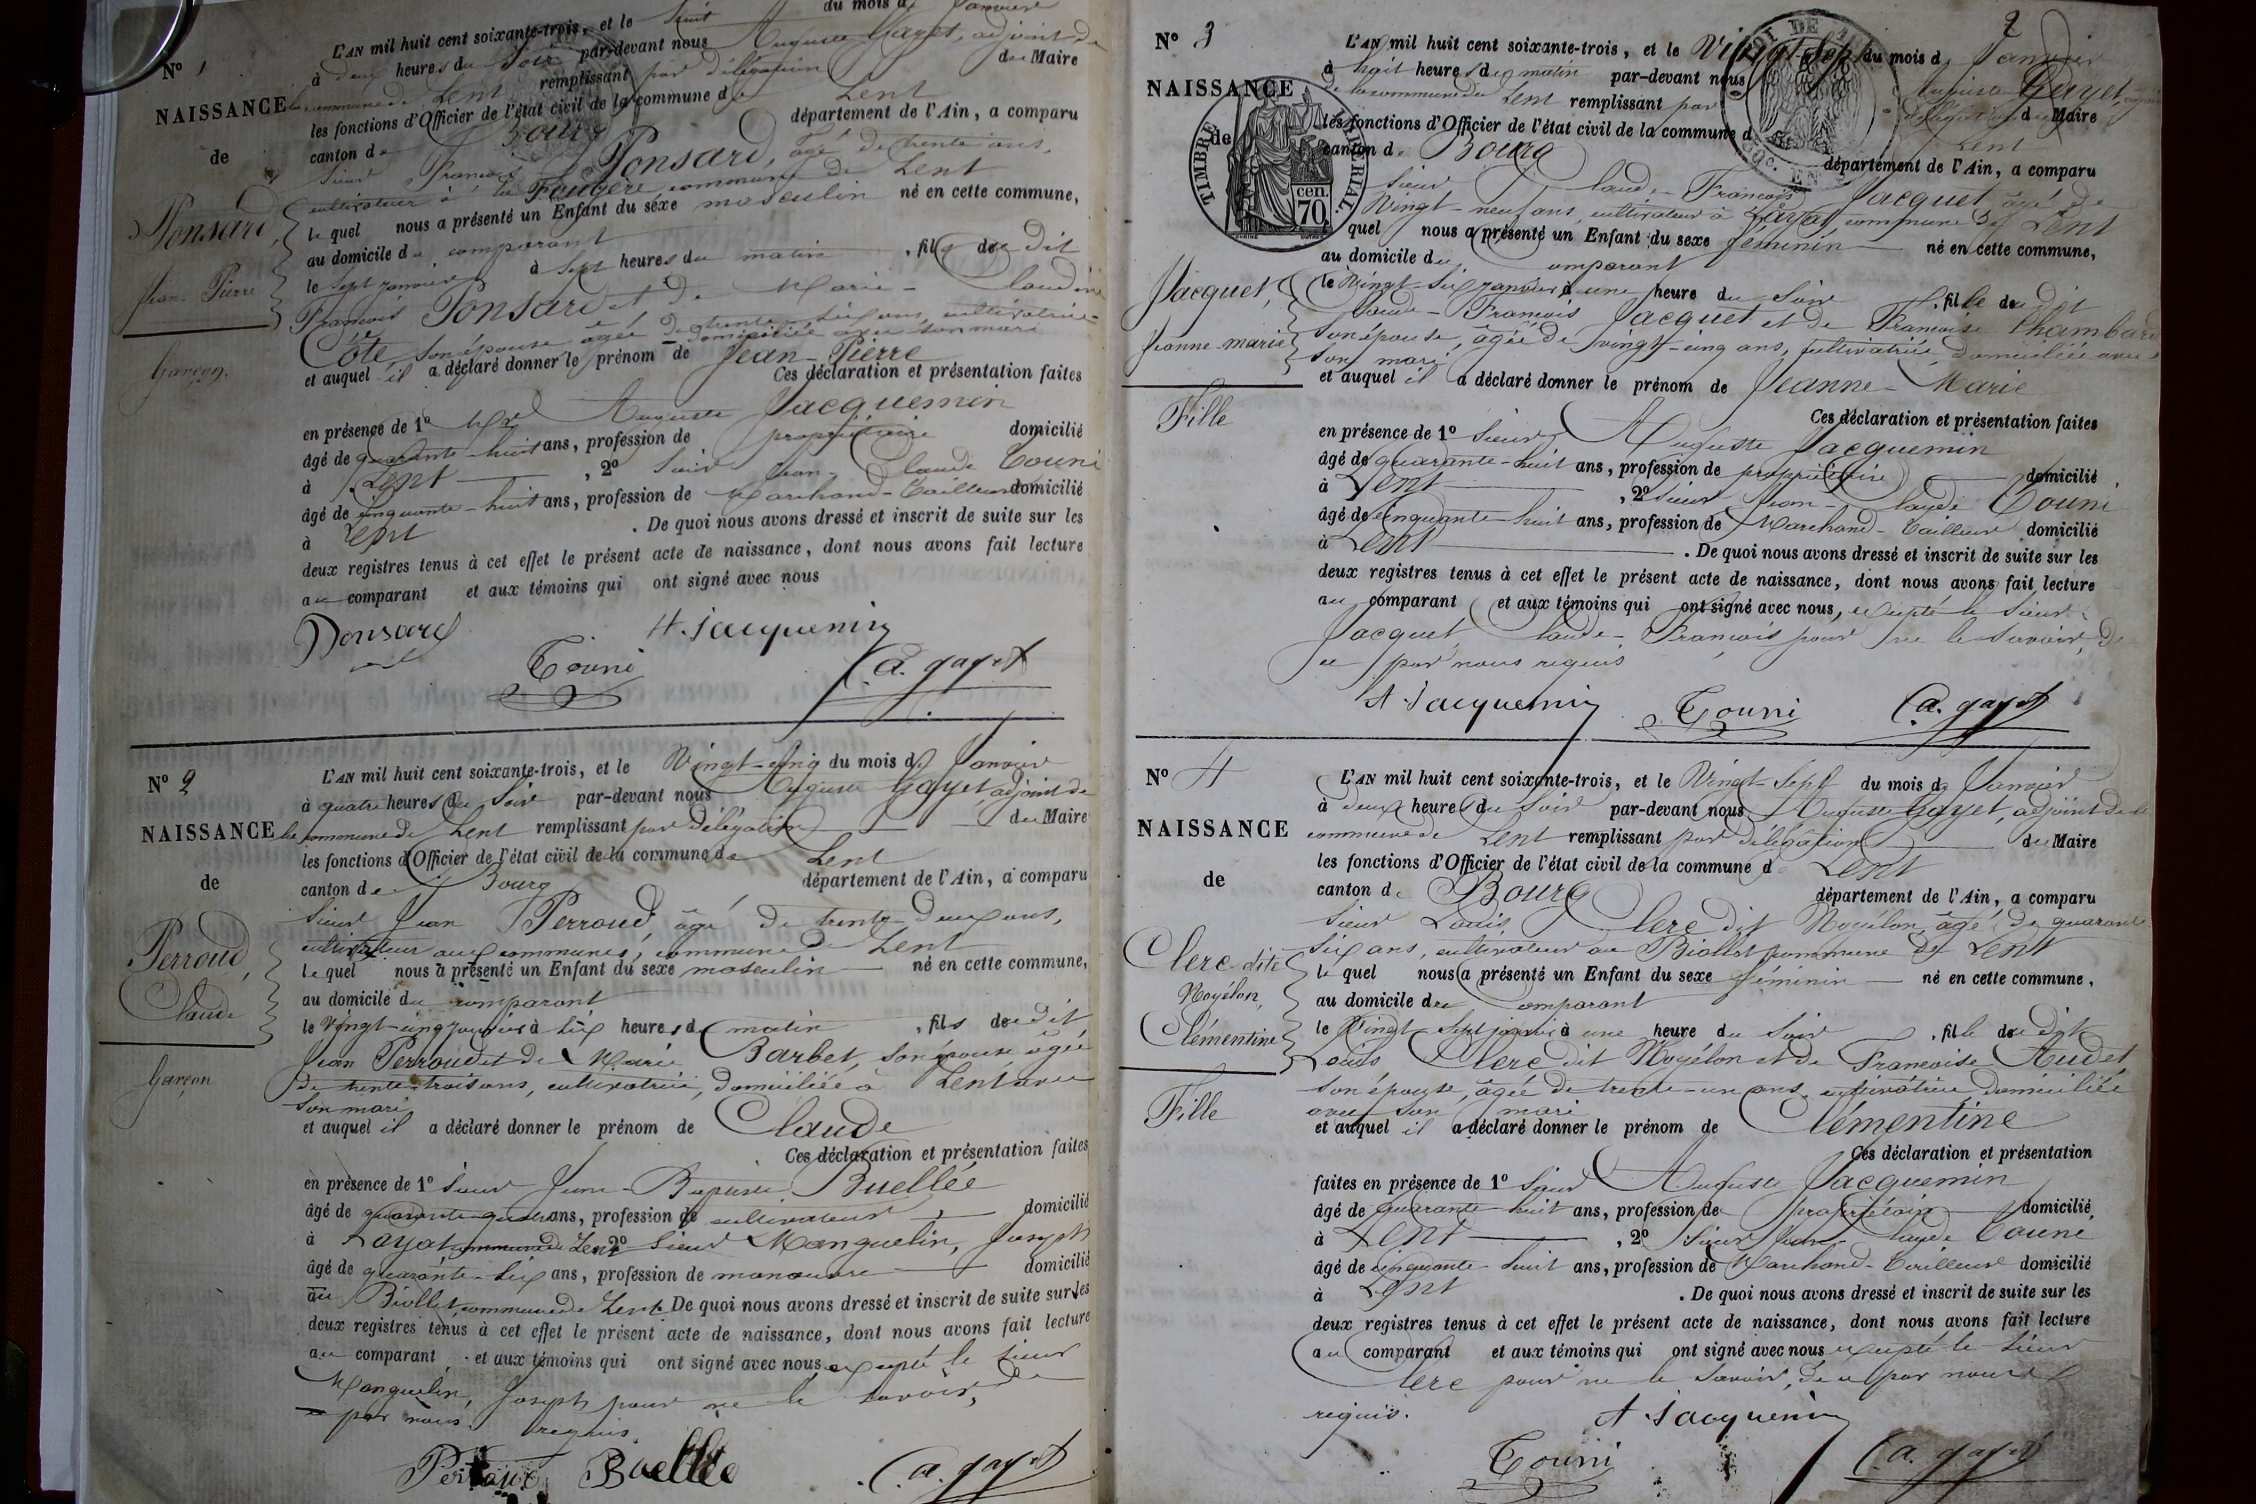 N° 1
NAISSANCE
de
Ponsard,
Jean-Pierre
Garçon.
L'AN mil huit cent soixante-trois, et le huit du mois d Janvier
à deux heures du Soir par-devant nous Auguste Gayet, adjoint de
la commune de Lent remplissant par délégation du Maire
les fonctions d'Officier de l'état civil de la commune de Lent
canton de Bourg département de l'Ain, a comparu
Sieur François Ponsard, âgé de trente ans,
cultivateur à la Fougère commune de Lent
le quel nous a présenté un Enfant du sexe masculin né en cette commune,
au domicile du comparant
le sept janvier à sept heures du matin, fils du dit
François Ponsard et de Marie-Claudine
Côte, son épouse âgée de trente-six ans, cultivatrice
domiciliée avec son mari
et auquel il a déclaré donner le prénom de Jean-Pierre
Ces déclaration et présentation faites
en présence de 1° Mr Auguste Jacquemin
âgé de quarante-huit ans, profession de propriétaire domicilié
à Lent, 2° Sieur Jean-Claude Touni
âgé de cinquante-huit ans, profession de Marchand-Tailleur domicilié
à Lent. De quoi nous avons dressé et inscrit de suite sur les
deux registres tenus à cet effet le présent acte de naissance, dont nous avons fait lecture
au comparant et aux témoins qui ont signé avec nous
Ponsard A. Jacquemin
Touni A. Gayet
N° 2
NAISSANCE
de
Perroud,
Claude
Garçon
L'AN mil huit cent soixante-trois, et le Vingt-cinq du mois de Janvier
à quatre heures du Soir par-devant nous Auguste Gayet, adjoint de
la commune de Lent remplissant par délégation du Maire
les fonctions d'Officier de l'état civil de la commune de Lent
canton de Bourg département de l'Ain, a comparu
Sieur Jean Perroud, âgé de trente-deux ans,
cultivateur aux communes, commune de Lent
le quel nous a présenté un Enfant du sexe masculin né en cette commune,
au domicile du comparant
le Vingt-cinq janvier à six heures du matin, fils du dit
Jean Perroud et de Marie Barbet, son épouse âgée
de trente-trois ans, cultivatrice, domiciliée à Lent avec
son mari
et auquel il a déclaré donner le prénom de Claude
Ces déclaration et présentation faites
en présence de 1° Sieur Jean-Baptiste Buellée
âgé de quarante-quatre ans, profession de cultivateur domicilié
à Layat commune de Lent 2° Sieur Manguelin, Joseph
âgé de quarante-six ans, profession de manoeuvre domicilié
au Biollet, commune de Lent. De quoi nous avons dressé et inscrit de suite sur les
deux registres tenus à cet effet le présent acte de naissance, dont nous avons fait lecture
au comparant et aux témoins qui ont signé avec nous, excepté le Sieur
Manguelin, Joseph pour ne le savoir, de
ce par nous requis.
Perroud Buellée A. Gayet
2
N° 3
NAISSANCE
de
TIMBRE IMPÉRIAL.
cen. 70
Jacquet,
Jeanne-marie
Fille
L'AN mil huit cent soixante-trois, et le Vingt-Sept du mois de Janvier
à huit heures du matin par-devant nous Auguste Gayet,
de la commune de Lent remplissant par délégation du Maire
les fonctions d'Officier de l'état civil de la commune de Lent
canton de Bourg département de l'Ain, a comparu
Sieur Claude-François Jacquet âgé de
Vingt-neuf ans, cultivateur à Layat commune de Lent
quel nous a présenté un Enfant du sexe féminin né en cette commune,
au domicile du comparant
le Vingt-six janvier à une heure du Soir, fille du dit
Claude-François Jacquet et de Françoise Chambard
son épouse, âgée de vingt-cinq ans, cultivatrice, domiciliée avec
son mari
et auquel il a déclaré donner le prénom de Jeanne-Marie
Ces déclaration et présentation faites
en présence de 1° Sieur Auguste Jacquemin
âgé de quarante-huit ans, profession de propriétaire domicilié
à Lent, 2° Sieur Jean-Claude Touni
âgé de cinquante-huit ans, profession de Marchand-Tailleur domicilié
à Lent. De quoi nous avons dressé et inscrit de suite sur les
deux registres tenus à cet effet le présent acte de naissance, dont nous avons fait lecture
au comparant et aux témoins qui ont signé avec nous, excepté le Sieur
Jacquet Claude-François pour ne le savoir, de
ce par nous requis
A. Jacquemin Touni A. Gayet
N° 4
NAISSANCE
de
Clerc dite
Noyélon,
Clémentine
Fille
L'AN mil huit cent soixante-trois, et le Vingt-Sept du mois de Janvier
à deux heure du Soir par-devant nous Auguste Gayet, adjoint de la
commune de Lent remplissant par délégation du Maire
les fonctions d'Officier de l'état civil de la commune d Lent
canton de Bourg département de l'Ain, a comparu
Sieur Louis Clerc dit Noyélon, âgé de quarante
six ans, cultivateur au Biollet commune de Lent
le quel nous a présenté un Enfant du sexe féminin né en cette commune,
au domicile du comparant
le Vingt-Sept janvier à une heure du Soir, fille du dit
Louis Clerc dit Noyélon et de Françoise Audet
son épouse, âgée de trente-un ans, cultivatrice, domiciliée
avec son mari
et auquel il a déclaré donner le prénom de Clémentine
Ces déclaration et présentation
faites en présence de 1° Sieur Auguste Jacquemin
âgé de quarante-huit ans, profession de propriétaire domicilié
à Lent, 2° Sieur Jean-Claude Touni
âgé de cinquante-huit ans, profession de Marchand-Tailleur domicilié
à Lent. De quoi nous avons dressé et inscrit de suite sur les
deux registres tenus à cet effet le présent acte de naissance, dont nous avons fait lecture
au comparant et aux témoins qui ont signé avec nous excepté le Sieur
Clerc pour ne le savoir, de ce par nous
requis.
A. Jacquemin
Touni A. Gayet